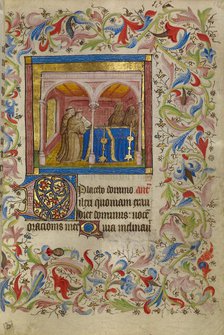 Placebo domino ant
ilexi quoniam exau
diet dominus: vocē
orationis mee
Quia inclinavit